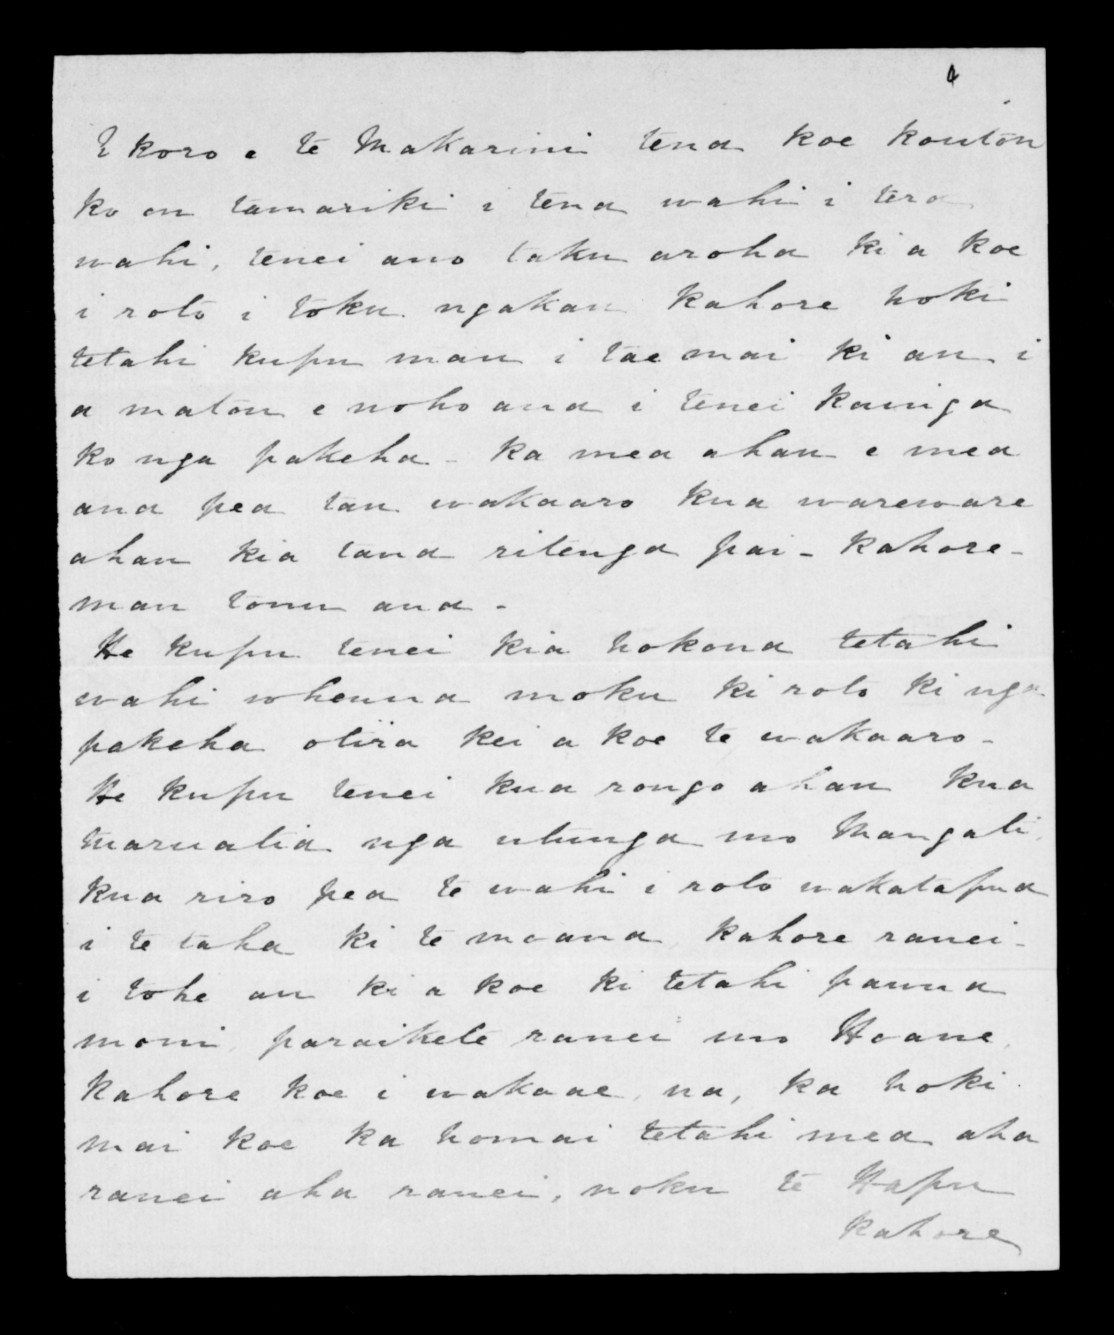 E koro e te Makarini tena koe koutou
ko ou tamariki i tena wahi i tera
wahi, tenei ano taku aroha ki a koe
i roto i toku ngakau kahore hoki
tetahi kupu mau i tae mai ki au i
a matou e noho ana i tenei kainga
ko nga pakeha - ka mea ahau e mea
ana pea tau wakaaro kua wareware
ahau kia tana ritenga pai - kahore -
mau tonu ana -
He kupu tenei kia hokona tetahi
wahi whenua moku ki roto ki nga
pakeha otira kei a koe te wakaaro -
He kupu tenei kua rongo ahau kua
maruatia nga utunga mo Mangati,
kua riro pea te wahi i roto wakatapua
i te taha ki te moana, kahore ranei -
i tohe au ki a koe ki tetahi pauna
moni, paraikete ranei mo Hoane,
kahore koe i wakaae, na, ka hoki
mai koe ka homai tetahi mea aha
ranei aha ranei, noku te Hapu
kahore